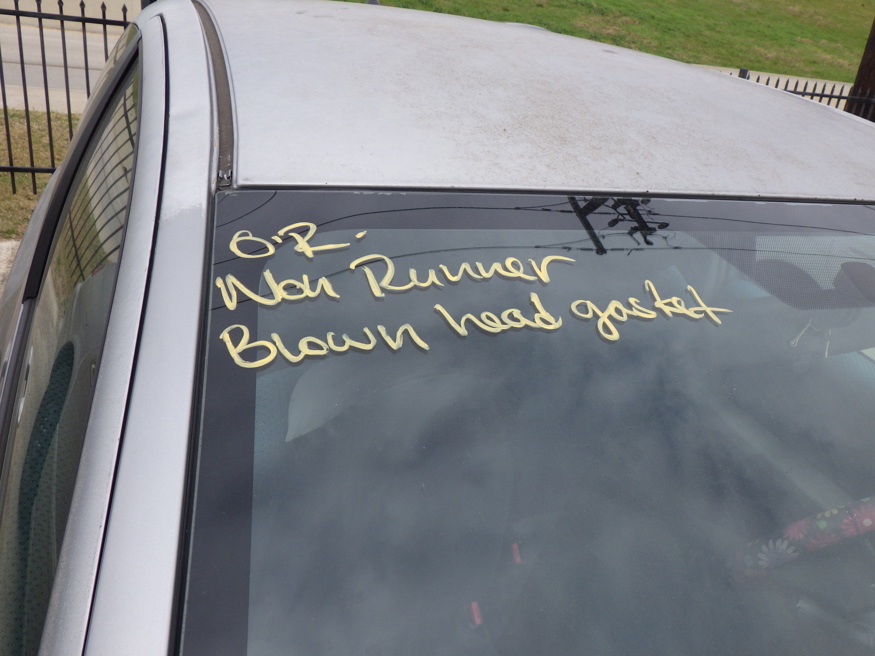 O.R.
Non Runner
Blown head gasket